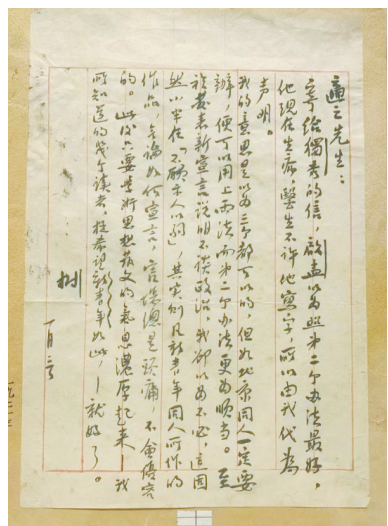 適之先生：
寄給獨秀的信，啟孟以為照第二个办法最好，
他現在生病，醫生不許他寫字，所以由我代為
声明。
我的意思是以為三个都可以的，但如北京同人一定要
辦，便可以用上兩法而第二个办法更為順當。至
於發表新宣言說明不談政治，我卻以為不必，這固
然小半在「不願示人以弱」，其實則凡新青年同人所作的
作品，無論如何宣言，官場總是頭痛，不會優容
的。此後只要學術思想藝文的氣息濃厚起來——我
所知道的幾个讀者，極希望新青年如此，——就好了。
樹
一月三日